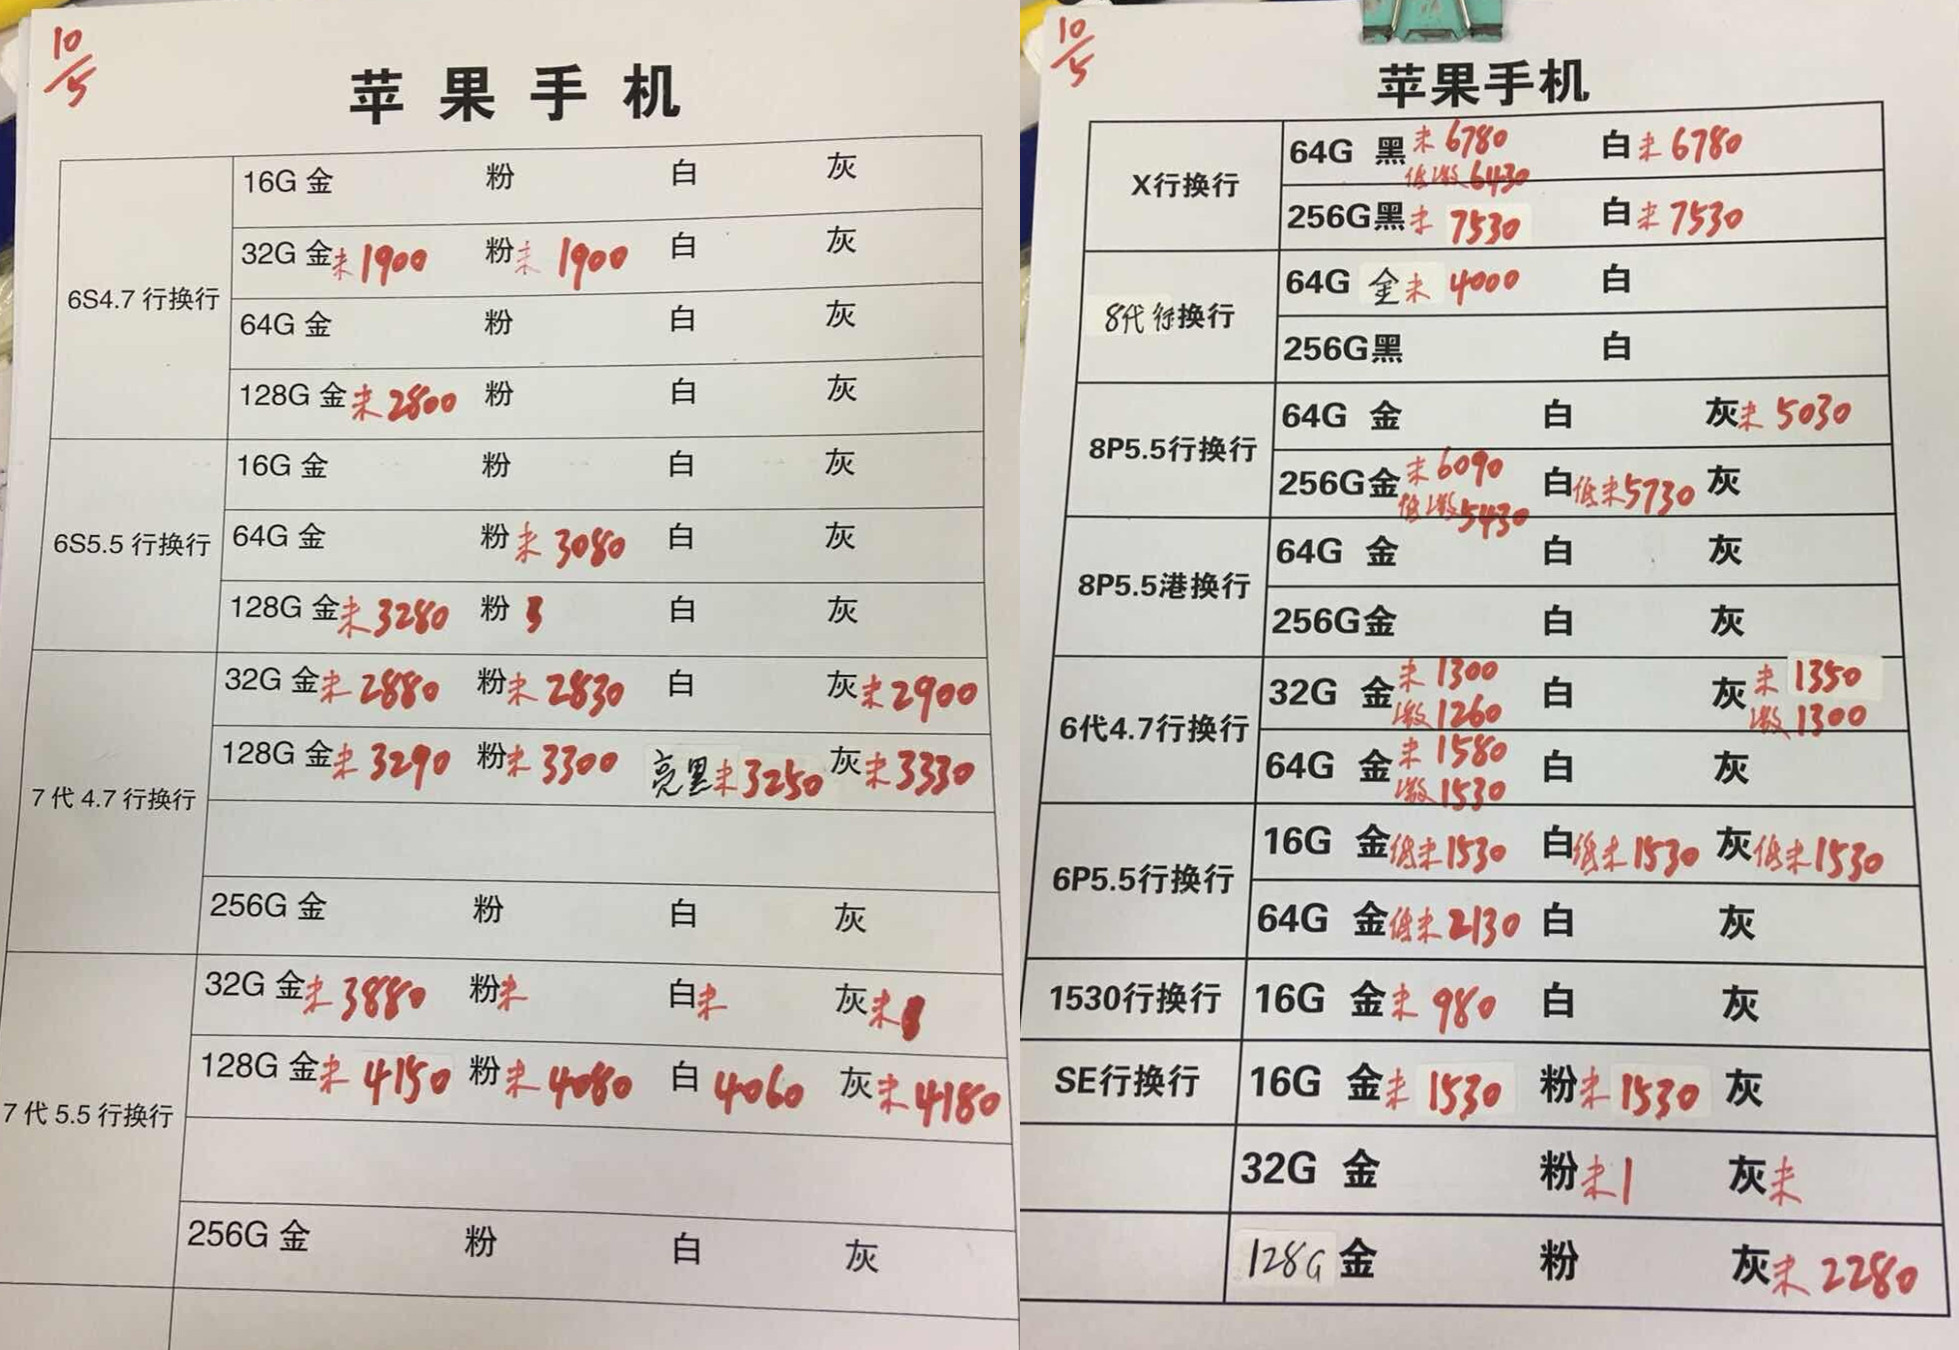 10/5
苹果手机
6S4.7行换行
16G 金 粉 白 灰
32G 金未1900 粉未1900 白 灰
64G 金 粉 白 灰
128G 金未2800 粉 白 灰
6S5.5行换行
16G 金 粉 白 灰
64G 金 粉未3080 白 灰
128G 金未3280 粉 3 白 灰
7代4.7行换行
32G 金未2880 粉未2830 白 灰未2900
128G 金未3290 粉未3300 亮黑未3250 灰未3330
256G 金 粉 白 灰
7代5.5行换行
32G 金未3880 粉未 白未 灰未
128G 金未4150 粉未4080 白4060 灰未4180
256G 金 粉 白 灰
10/5
苹果手机
X行换行
64G 黑未6780 白未6780
低激6430
256G黑未7530 白未7530
8代行换行
64G 金未4000 白
256G黑 白
8P5.5行换行
64G 金 白 灰未5030
256G金未6090 白低未5730 灰
低激5430
8P5.5港换行
64G 金 白 灰
256G金 白 灰
6代4.7行换行
32G 金未1300 白 灰未1350
激1260 激1300
64G 金未1580 白 灰
激1530
6P5.5行换行
16G 金低未1530 白低未1530 灰低未1530
64G 金低未2130 白 灰
1530行换行
16G 金未980 白 灰
SE行换行
16G 金未1530 粉未1530 灰
32G 金 粉未1 灰未
128G 金 粉 灰未2280